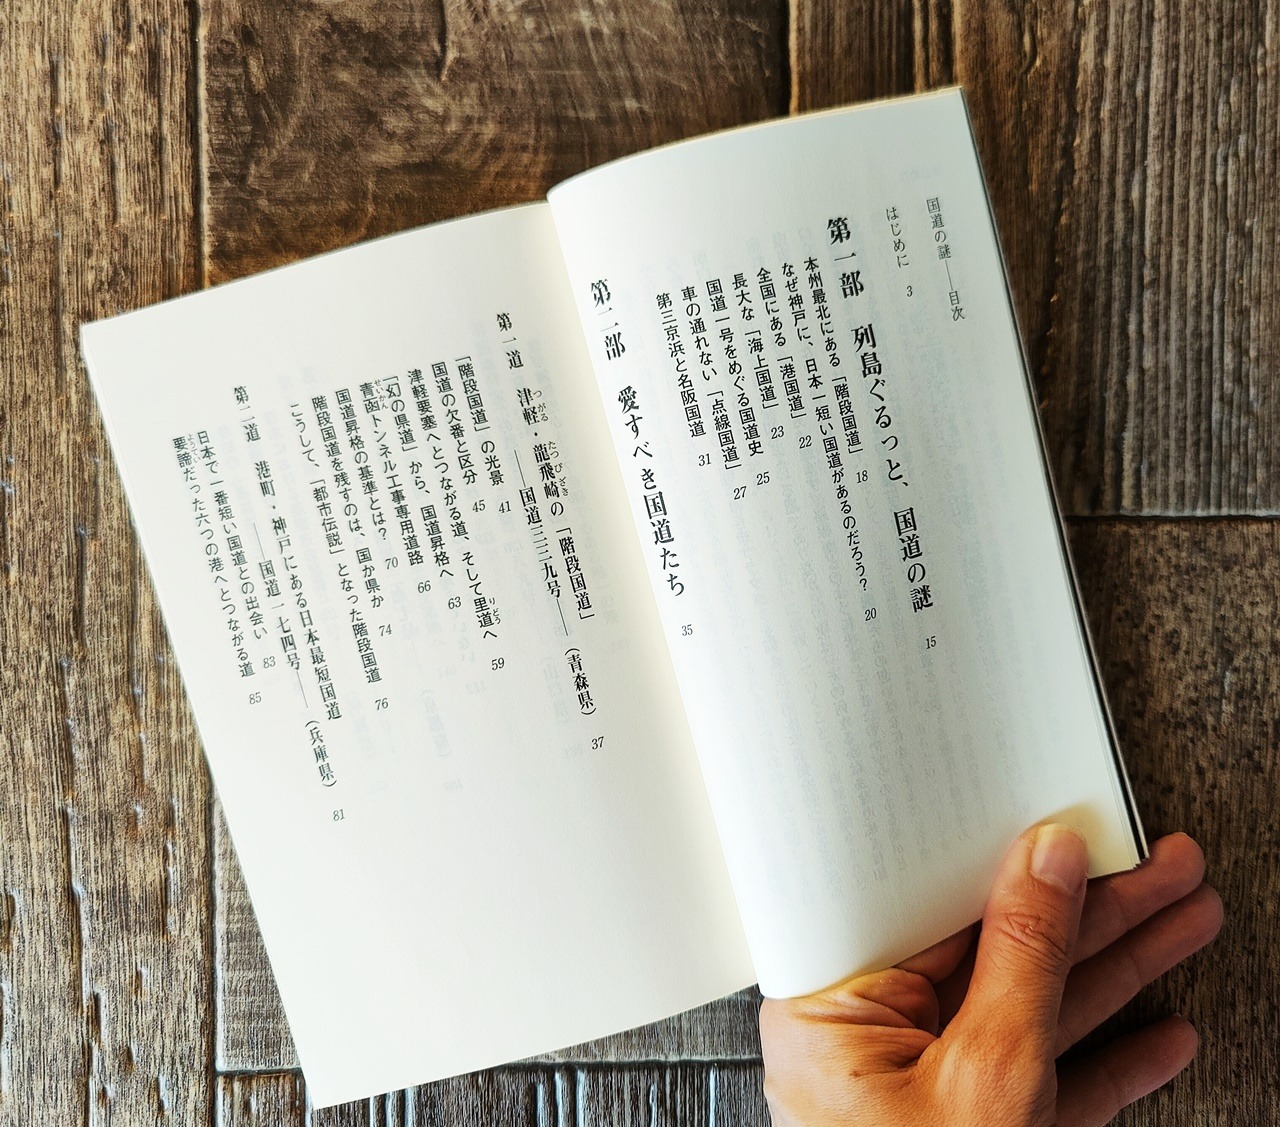 国道の謎——目次
はじめに 3
第一部 列島ぐるっと、国道の謎 15
本州最北にある「階段国道」 18
なぜ神戸に、日本一短い国道があるのだろう? 20
全国にある「港国道」 22
長大な「海上国道」 23
国道一号をめぐる国道史 25
車の通れない「点線国道」 27
第三京浜と名阪国道 31
第二部 愛すべき国道たち 35
第一道 津軽・龍飛崎の「階段国道」
つがる たつぴざき
——国道三三九号——(青森県) 37
「階段国道」の光景 41
国道の欠番と区分 45
津軽要塞へとつながる道、そして里道へ 59
りどう
「幻の県道」から、国道昇格へ 63
青函トンネル工事専用道路 66
せいかん
国道昇格の基準とは? 70
階段国道を残すのは、国か県か 74
こうして、「都市伝説」となった階段国道 76
第二道 港町・神戸にある日本最短国道
——国道一七四号——(兵庫県) 81
日本で一番短い国道との出会い 83
要諦だった六つの港へとつながる道 85
ようてい